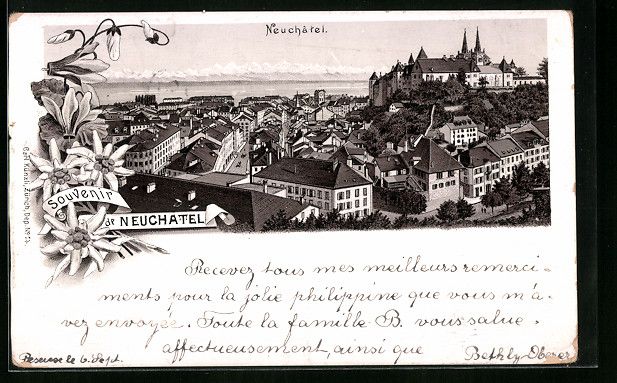 Neuchâtel.
Carl Künzli, Zürich Dep. No
Souvenir
de NEUCHATEL
Recevez tous mes meilleurs remerci-
ments pour la jolie philippine que vous m'a-
vez envoyée. Toute la famille B. vous salue
affectueusement, ainsi que
Bethly Oberer
Peseux le 6. Sept.